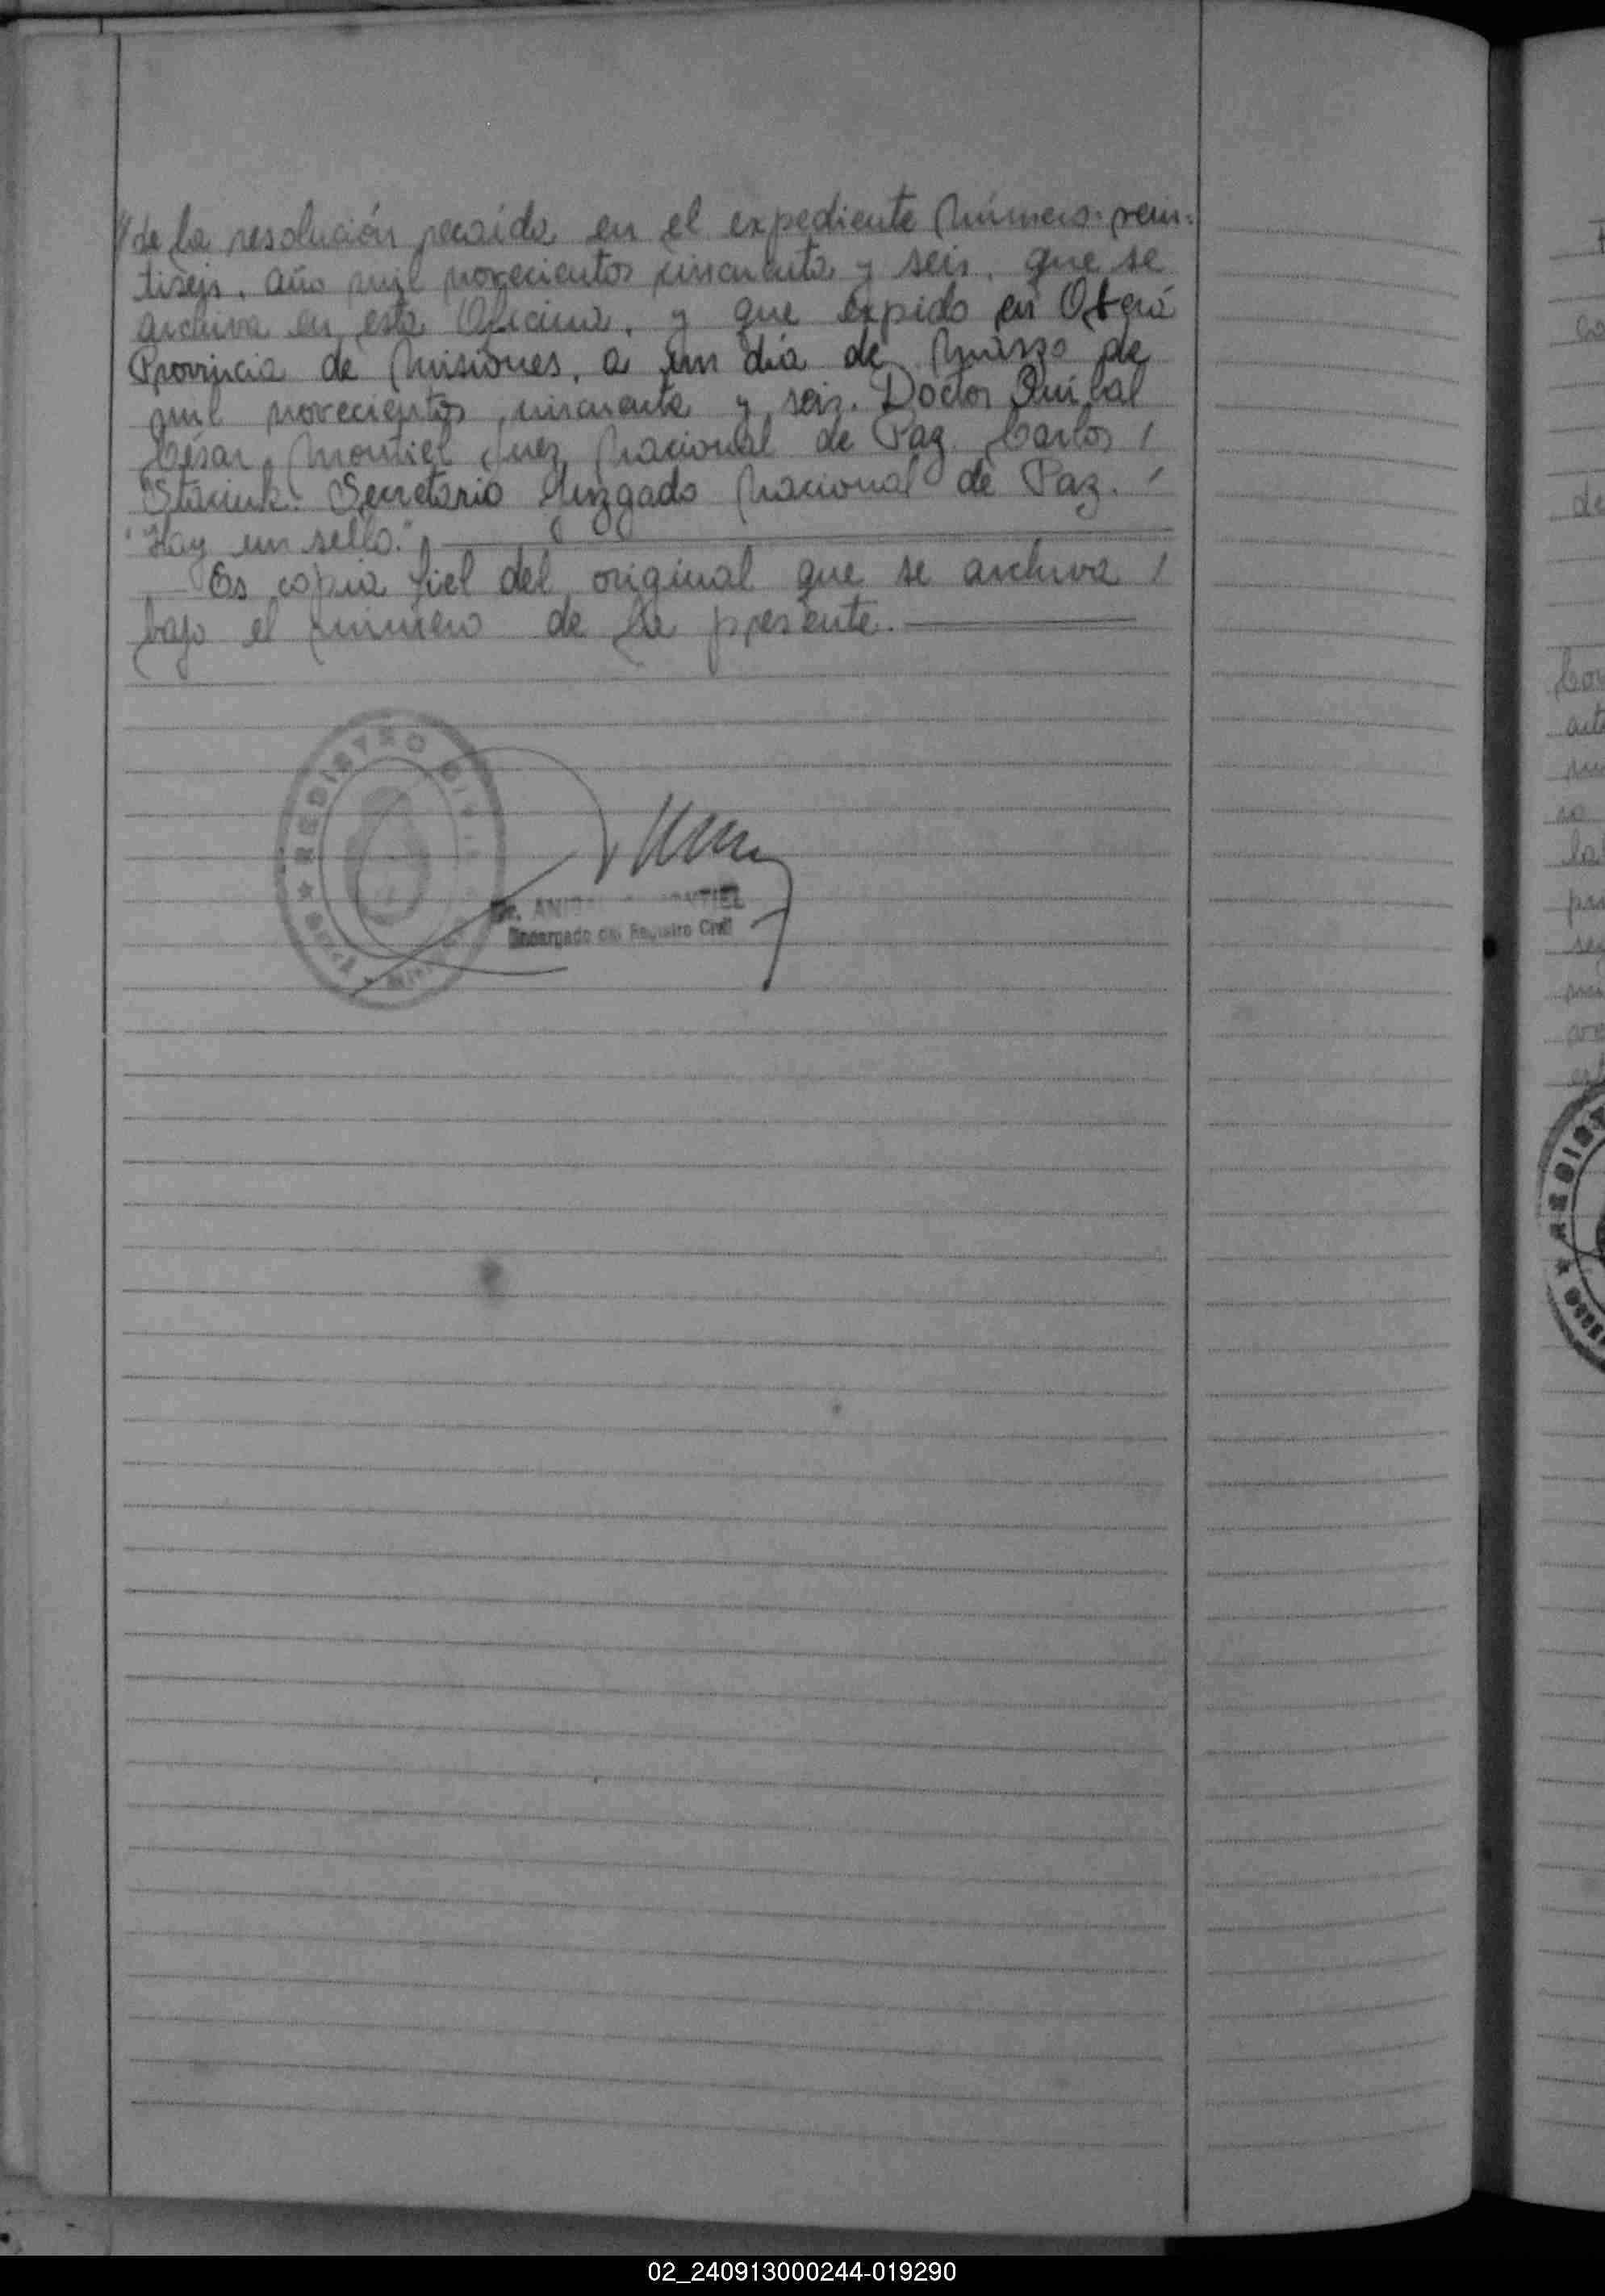 "de la resolución recaída en el expediente número: vein-
tiseis, año mil novecientos cincuenta y seis, que se
archiva en esta Oficina, y que expido en Oberá
Provincia de Misiones, a un día de Marzo de
mil novecientos cincuenta y seis. Doctor Anibal
César Montiel Juez Nacional de Paz. Carlos /
Secretario Juzgado Nacional de Paz. /
"Hay un sello."
Es copia fiel del original que se archiva /
bajo el número de la presente.
REGISTRO CIVIL
Dr. ANIBAL C. MONTIEL
Encargado del Registro Civil
02_240913000244-019290